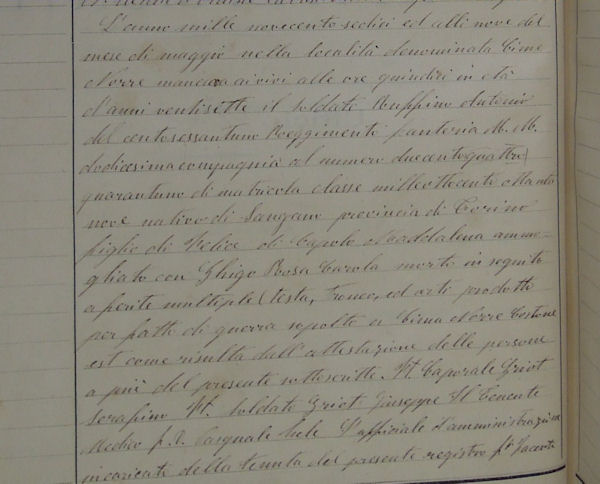 L'anno mille novecento sedici ed alli nove del
mese di maggio nella località denominata Cime
Norre mancava ai vivi alle ore quindici in età
d'anni ventisette il soldato Ruffino Antonio
del centosessantuno Reggimento fanteria M. M.
dodicesima compagnia al numero duecentoquattro
quarantuno di matricola classe milleottocento ottanta
nove nativo di Sangano provincia di Torino
figlio di Felice di Maddalena ammo-
gliato con Ghigo Rosa Carola morto in seguito
a ferite multiple (testa, tronco, ed arti prodotti
per fatto di guerra sepolto a Cima Norre Costone
est come risulta dall'attestazione delle persone
a piè del presente sottoscritte. Ft. Caporale Griot
Serafino Ft. Soldato Griot Giuseppe Il Tenente
Medico f.to Pasquale L'ufficiale d'amministrazione
incaricato della tenuta del presente registro f.to